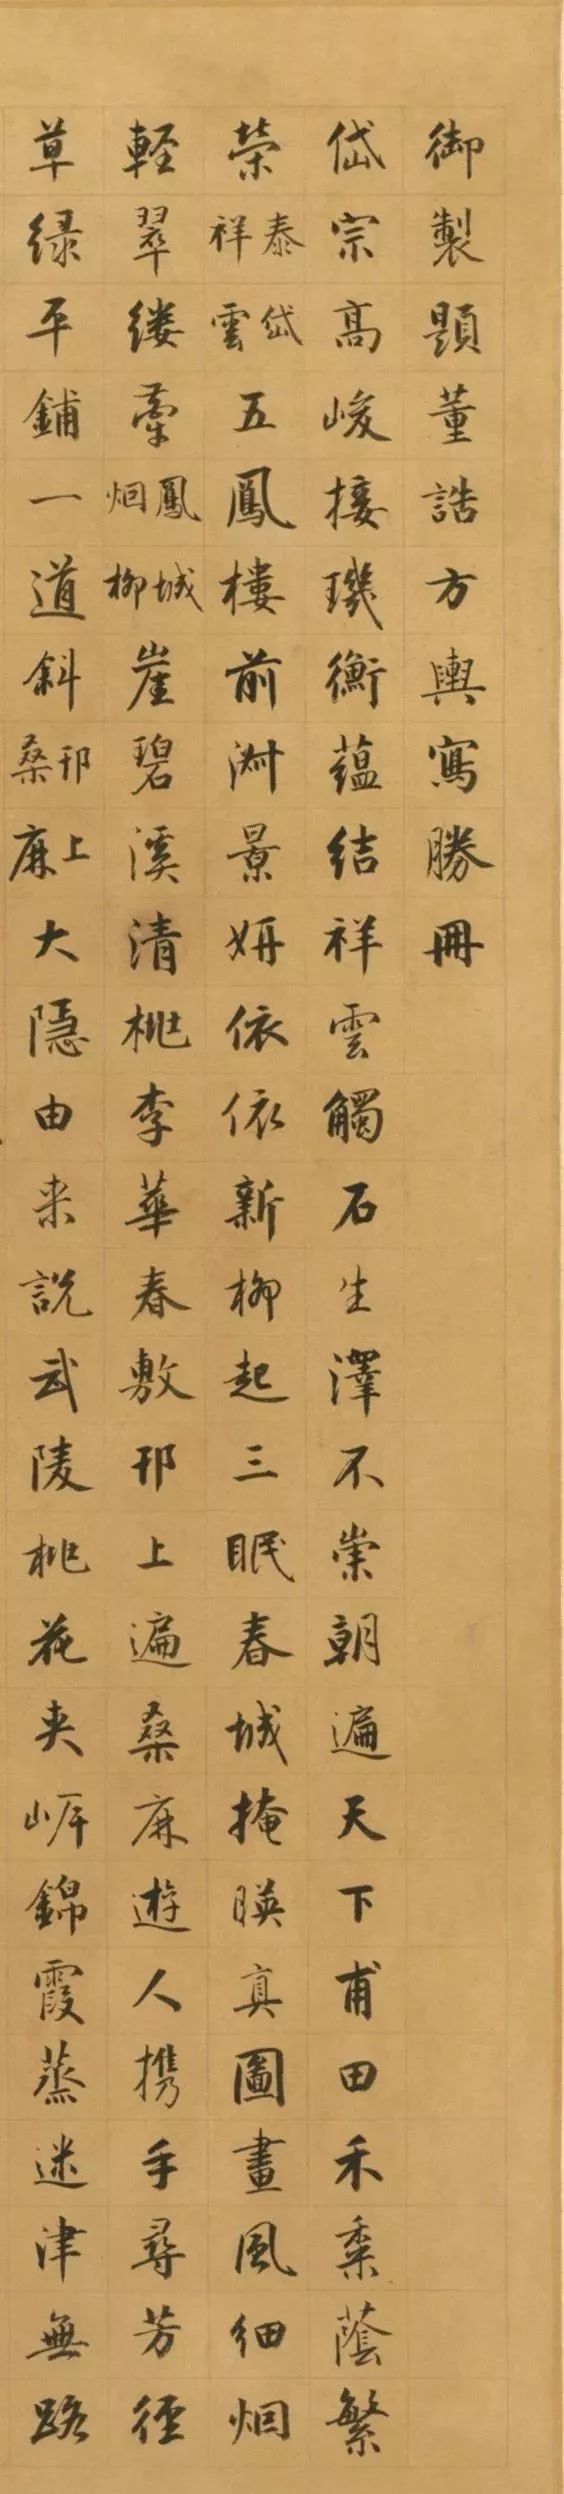 御製題董誥方輿寫勝冊
岱宗高峻接璣衡蘊結祥雲觸石生澤不崇朝遍天下甫田禾黍蔭繁
榮泰岱祥雲五鳳樓前淑景妍依依新柳起三眠春城掩暎真圖畫風細烟
輕翠縷牽鳳城烟柳崖碧溪清桃李華春敷邗上遍桑麻遊人携手尋芳徑
草绿平鋪一道斜邗上桑麻大隱由来説武陵桃花夹崕錦霞蒸迷津無路